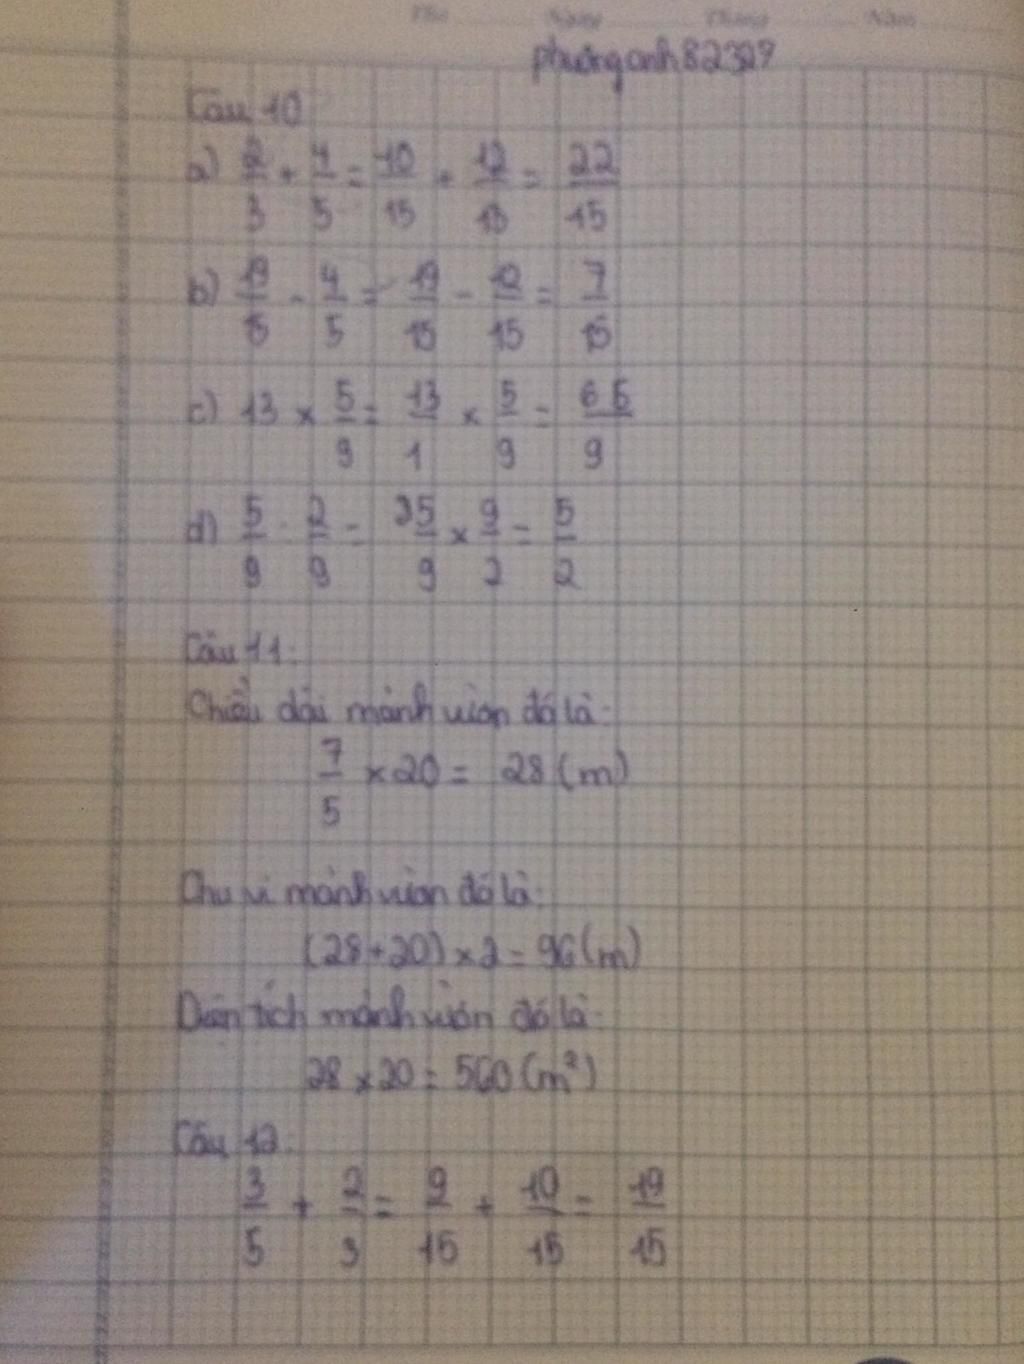 Thứ Ngày Tháng Năm
phuonganh82327
Câu 10
a) 2/3 + 4/5 = 10/15 + 12/15 = 22/15
b) 19/15 - 4/5 = 19/15 - 12/15 = 7/15
c) 13 × 5/9 = 13/1 × 5/9 = 65/9
d) 5/9 : 2/9 = 5/9 × 9/2 = 5/2
Câu 11:
Chiều dài mảnh vườn đó là:
7/5 × 20 = 28 (m)
Chu vi mảnh vườn đó là:
(28 + 20) × 2 = 96 (m)
Diện tích mảnh vườn đó là:
28 × 20 = 560 (m²)
Câu 12:
3/5 + 2/3 = 9/15 + 10/15 = 19/15